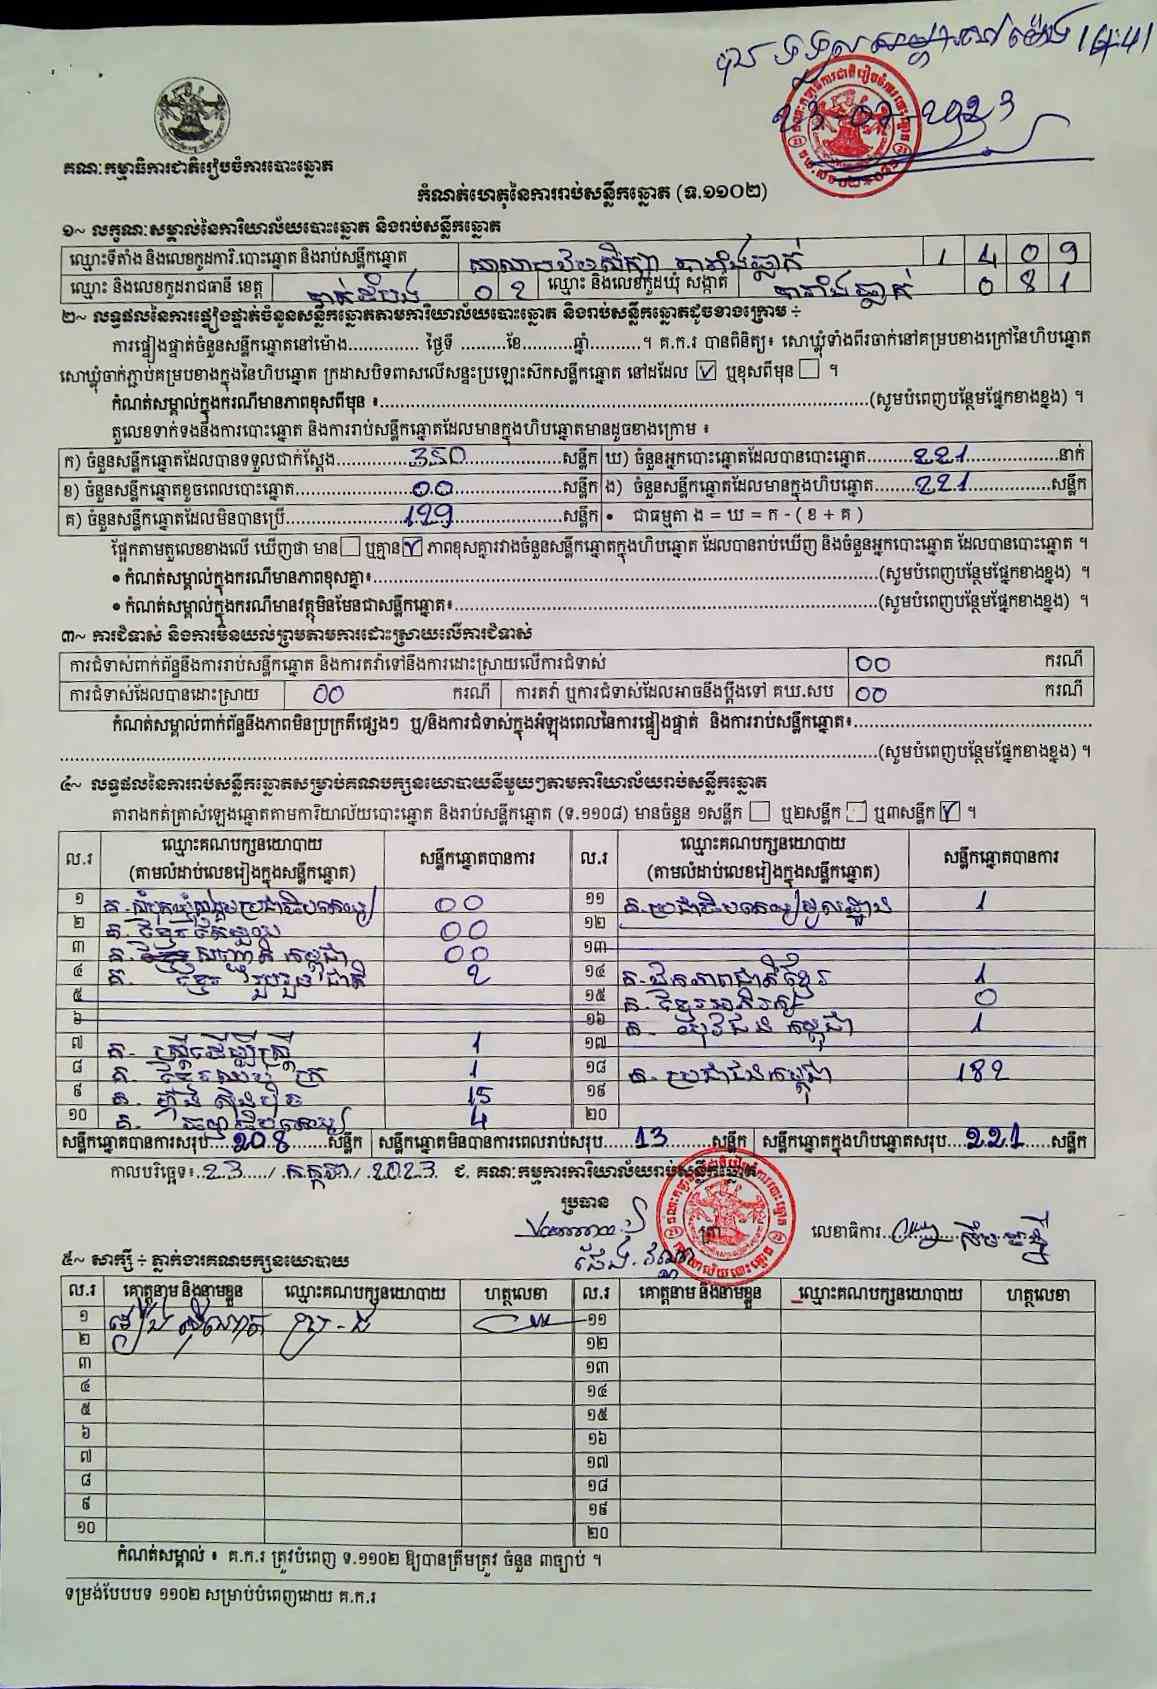 គណៈកម្មាធិការជាតិរៀបចំការបោះឆ្នោត
23-07-2023
កំណត់ហេតុនៃការរាប់សន្លឹកឆ្នោត (ទ.១១០២)
១~ លក្ខណៈសម្គាល់នៃការិយាល័យបោះឆ្នោត និងរាប់សន្លឹកឆ្នោត
ឈ្មោះទីតាំង និងលេខកូដការិ.បោះឆ្នោត និងរាប់សន្លឹកឆ្នោត 1 4 0 9
ឈ្មោះ និងលេខកូដរាជធានី ខេត្ត បាត់ដំបង 0 2 ឈ្មោះ និងលេខកូដឃុំ សង្កាត់ បារាំងធ្លាក់ 0 8 1
២~ លទ្ធផលនៃការផ្ទៀងផ្ទាត់ចំនួនសន្លឹកឆ្នោតតាមការិយាល័យបោះឆ្នោត និងរាប់សន្លឹកឆ្នោតដូចខាងក្រោម ÷
ការផ្ទៀងផ្ទាត់ចំនួនសន្លឹកឆ្នោតនៅម៉ោង.............. ថ្ងៃទី .........ខែ..........ឆ្នាំ..........។ គ.ក.រ បានពិនិត្យ៖ សោឃ្លុំទាំងពីរចាក់នៅគម្របខាងក្រៅនៃហិបឆ្នោត
សោឃ្លុំចាក់ភ្ជាប់គម្របខាងក្នុងនៃហិបឆ្នោត ក្រដាសបិទពាសលើសន្ទះប្រឡោះស៊កសន្លឹកឆ្នោត នៅដដែល ☑ ឬខុសពីមុន ☐ ។
កំណត់សម្គាល់ក្នុងករណីមានភាពខុសពីមុន ៖....................(សូមបំពេញបន្ថែមផ្នែកខាងខ្នង) ។
តួលេខទាក់ទងនឹងការបោះឆ្នោត និងការរាប់សន្លឹកឆ្នោតដែលមានក្នុងហិបឆ្នោតមានដូចខាងក្រោម ៖
ក) ចំនួនសន្លឹកឆ្នោតដែលបានទទួលជាក់ស្តែង......350......សន្លឹក ឃ) ចំនួនអ្នកបោះឆ្នោតដែលបានបោះឆ្នោត......221......នាក់
ខ) ចំនួនសន្លឹកឆ្នោតខូចពេលបោះឆ្នោត......00......សន្លឹក ង) ចំនួនសន្លឹកឆ្នោតដែលមានក្នុងហិបឆ្នោត......221......សន្លឹក
គ) ចំនួនសន្លឹកឆ្នោតដែលមិនបានប្រើ......129......សន្លឹក • ជាធម្មតា ង = ឃ = ក - ( ខ + គ )
ផ្អែកតាមតួលេខខាងលើ ឃើញថា មាន☐ ឬគ្មាន☑ ភាពខុសគ្នារវាងចំនួនសន្លឹកឆ្នោតក្នុងហិបឆ្នោត ដែលបានរាប់ឃើញ និងចំនួនអ្នកបោះឆ្នោត ដែលបានបោះឆ្នោត ។
• កំណត់សម្គាល់ក្នុងករណីមានភាពខុសគ្នា៖....................(សូមបំពេញបន្ថែមផ្នែកខាងខ្នង) ។
• កំណត់សម្គាល់ក្នុងករណីមានវត្ថុមិនមែនជាសន្លឹកឆ្នោត៖....................(សូមបំពេញបន្ថែមផ្នែកខាងខ្នង) ។
៣~ ការជំទាស់ និងការមិនយល់ព្រមតាមការដោះស្រាយលើការជំទាស់
ការជំទាស់ពាក់ព័ន្ធនឹងការរាប់សន្លឹកឆ្នោត និងការតវ៉ាទៅនឹងការដោះស្រាយលើការជំទាស់ 00 ករណី
ការជំទាស់ដែលបានដោះស្រាយ 00 ករណី ការតវ៉ា ឬការជំទាស់ដែលអាចនឹងប្តឹងទៅ គឃ.សប 00 ករណី
កំណត់សម្គាល់ពាក់ព័ន្ធនឹងភាពមិនប្រក្រតីផ្សេងៗ ឬ/និងការជំទាស់ក្នុងអំឡុងពេលនៃការផ្ទៀងផ្ទាត់ និងការរាប់សន្លឹកឆ្នោត៖....................
....................(សូមបំពេញបន្ថែមផ្នែកខាងខ្នង) ។
៤~ លទ្ធផលនៃការរាប់សន្លឹកឆ្នោតសម្រាប់គណបក្សនយោបាយនីមួយៗតាមការិយាល័យរាប់សន្លឹកឆ្នោត
តារាងកត់ត្រាសំឡេងឆ្នោតតាមការិយាល័យបោះឆ្នោត និងរាប់សន្លឹកឆ្នោត (ទ.១១០៨) មានចំនួន ១សន្លឹក ☐ ឬ២សន្លឹក ☐ ឬ៣សន្លឹក ☑ ។
ល.រ ឈ្មោះគណបក្សនយោបាយ (តាមលំដាប់លេខរៀងក្នុងសន្លឹកឆ្នោត) សន្លឹកឆ្នោតបានការ ល.រ ឈ្មោះគណបក្សនយោបាយ (តាមលំដាប់លេខរៀងក្នុងសន្លឹកឆ្នោត) សន្លឹកឆ្នោតបានការ
១ 00 ១១ 1
២ 00 ១២
៣ 00 ១៣
៤ គ. ខ្មែរ រួបរួមជាតិ 2 ១៤ គ. ឯកភាពជាតិខ្មែរ 1
៥ ១៥ គ. ខ្មែរអភិរក្ស 0
៦ ១៦ គ. យុវជនកម្ពុជា 1
៧ គ. ស្ត្រីដើម្បីស្ត្រី 1 ១៧
៨ 1 ១៨ គ. ប្រជាជនកម្ពុជា 182
៩ គ. ហ្វ៊ុនស៊ិនប៉ិច 15 ១៩
១០ 4 ២០
សន្លឹកឆ្នោតបានការសរុប......208......សន្លឹក សន្លឹកឆ្នោតមិនបានការពេលរាប់សរុប......13......សន្លឹក សន្លឹកឆ្នោតក្នុងហិបឆ្នោតសរុប......221......សន្លឹក
កាលបរិច្ឆេទ៖..23..../.កក្កដា./.2023 ជ. គណៈកម្មការការិយាល័យរាប់សន្លឹកឆ្នោត
ប្រធាន
ត្រា លេខាធិការ
៥~ សាក្សី ÷ ភ្នាក់ងារគណបក្សនយោបាយ
ល.រ គោត្តនាម និងនាមខ្លួន ឈ្មោះគណបក្សនយោបាយ ហត្ថលេខា ល.រ គោត្តនាម និងនាមខ្លួន ឈ្មោះគណបក្សនយោបាយ ហត្ថលេខា
១ ១១
២ ១២
៣ ១៣
៤ ១៤
៥ ១៥
៦ ១៦
៧ ១៧
៨ ១៨
៩ ១៩
១០ ២០
កំណត់សម្គាល់ ៖ គ.ក.រ ត្រូវបំពេញ ទ.១១០២ ឱ្យបានត្រឹមត្រូវ ចំនួន ៣ច្បាប់ ។
ទម្រង់បែបបទ ១១០២ សម្រាប់បំពេញដោយ គ.ក.រ